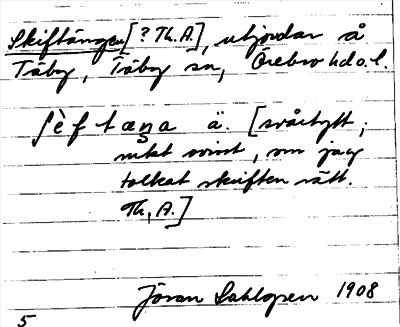 Skiftängen [? Th. A.], utjordar å
Täby, Täby sn, Örebro hd o. l.
ʃèftæŋa ä. [svårtytt;
mkt ovisst, om jag
tolkat skriften rätt.
Th. A.]
Jöran Sahlgren 1908
5